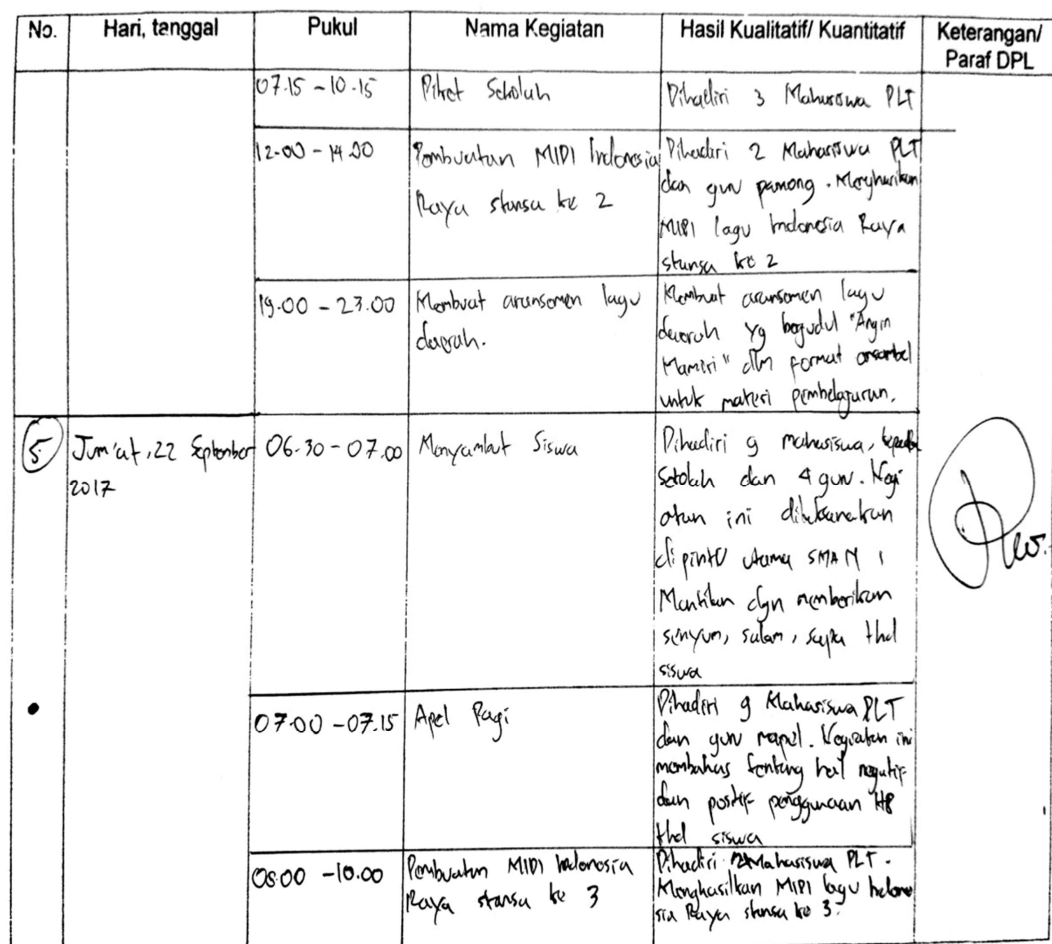 No. Hari, tanggal Pukul Nama Kegiatan Hasil Kualitatif/ Kuantitatif Keterangan/
Paraf DPL
07.15 - 10.15 Piket Sekolah Dihadiri 3 Mahasiswa PLT
12.00 - 14.00 Pembuatan MIDI Indonesia Dihadiri 2 Mahasiswa PLT
Raya stansa ke 2 dan guru pamong. Menghasilkan
MIDI lagu Indonesia Raya
stansa ke 2
19.00 - 23.00 Membuat aransemen lagu Membuat aransemen lagu
daerah. daerah yg berjudul "Angin
Mamiri" dlm format ansambel
untuk materi pembelajaran.
5 Jum'at, 22 September 06.30 - 07.00 Menyambut Siswa Dihadiri 9 mahasiswa, kepala
2017 sekolah dan 4 guru. Kegi
atan ini dilaksanakan
di pintu utama SMA N 1
dgn memberikan
senyum, salam, sapa thd
siswa
07.00 - 07.15 Apel Pagi Dihadiri 9 Mahasiswa PLT
dan guru mapel. Kegiatan ini
membahas tentang hal negatif
dan positif penggunaan HP
thd siswa
08.00 - 10.00 Pembuatan MIDI Indonesia Dihadiri Mahasiswa PLT.
Raya stansa ke 3 Menghasilkan MIDI lagu Indone
sia Raya stansa ke 3.